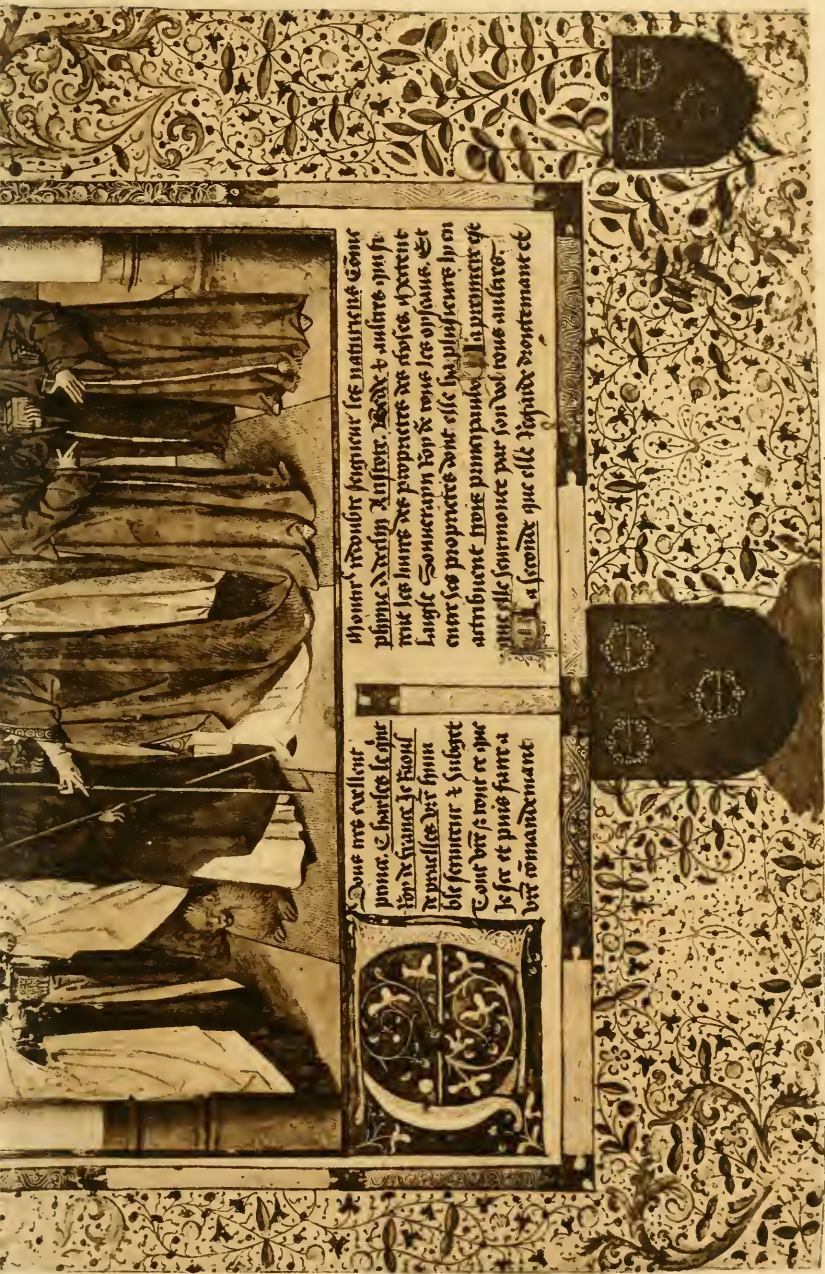 Vous tres excellent
prince. Charles le qint
roy de france Je Raoul
de praelles vr̃e hum
ble seruiteur & subget
Tout vr̃e & tout ce que
Je sce et puis faire a
vr̃e comandemant
redoubte seigneur les naturiens Cõme
Aristote. Bede & aultres qui fi
rent les liures des proprietes des choses.
Laigle Souuerayn roy de tous les oyseaus. Et
entre ses proprietes dont elle ha plusieurs lyen
attribuent trois La premiere est
que elle seurmonte par son vol tous aultres
La seconde que elle regarde droitemant et